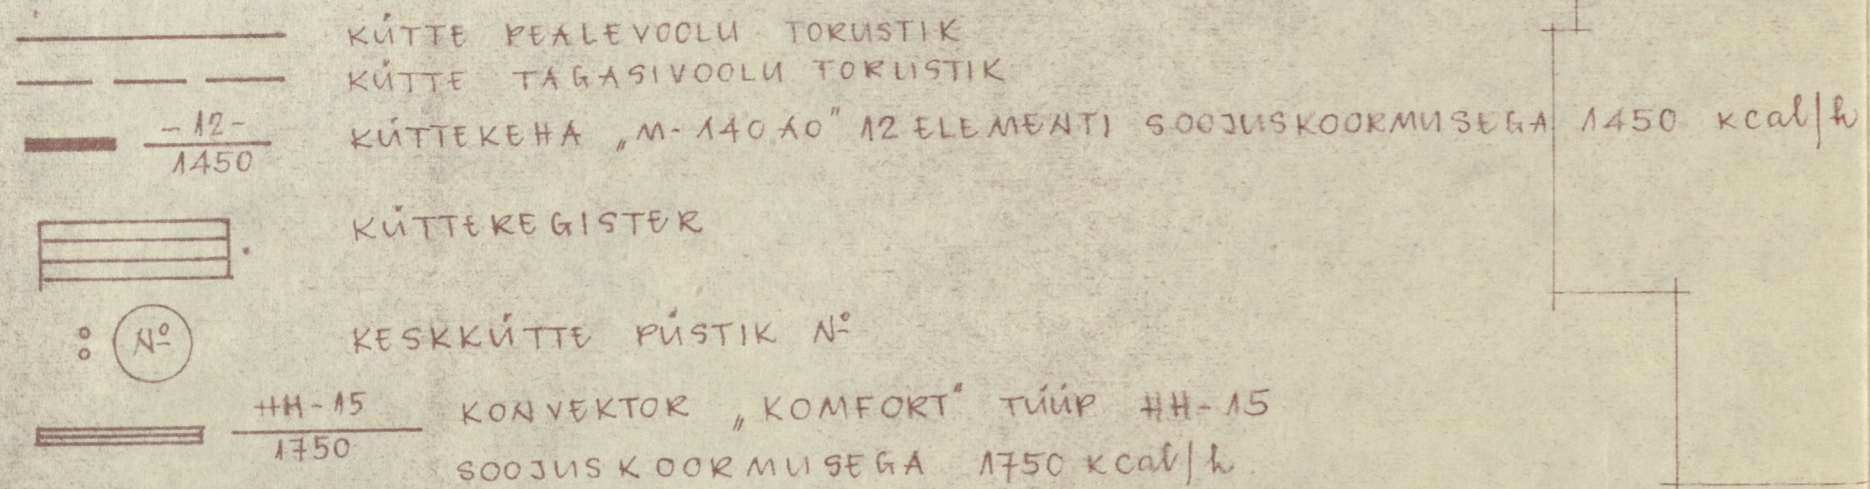 KÜTTE PEALEVOOLU TORUSTIK
KÜTTE TAGASIVOOLU TORUSTIK
-12-
1450
KÜTTEKEHA „M-140 AO" 12 ELEMENTI SOOJUSKOORMUSEGA 1450 kcal/h
KÜTTEREGISTER
No
KESKKÜTTE PÜSTIK No
HH-15
1750
KONVEKTOR „KOMFORT" TÜÜP HH-15
SOOJUSKOORMUSEGA 1750 kcal/h